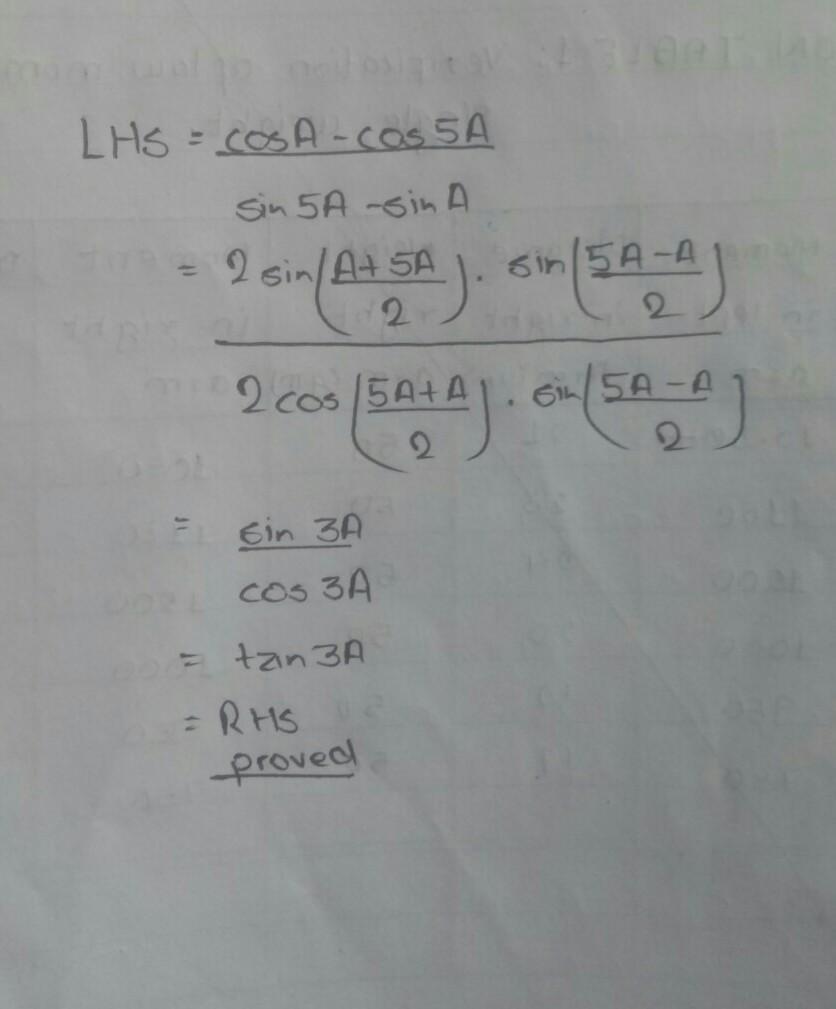 LHS = cosA - cos 5A
sin 5A - sin A
= 2 sin(A + 5A / 2) . sin(5A - A / 2)
2 cos(5A + A / 2) . sin(5A - A / 2)
= sin 3A
cos 3A
= tan 3A
= RHS
proved